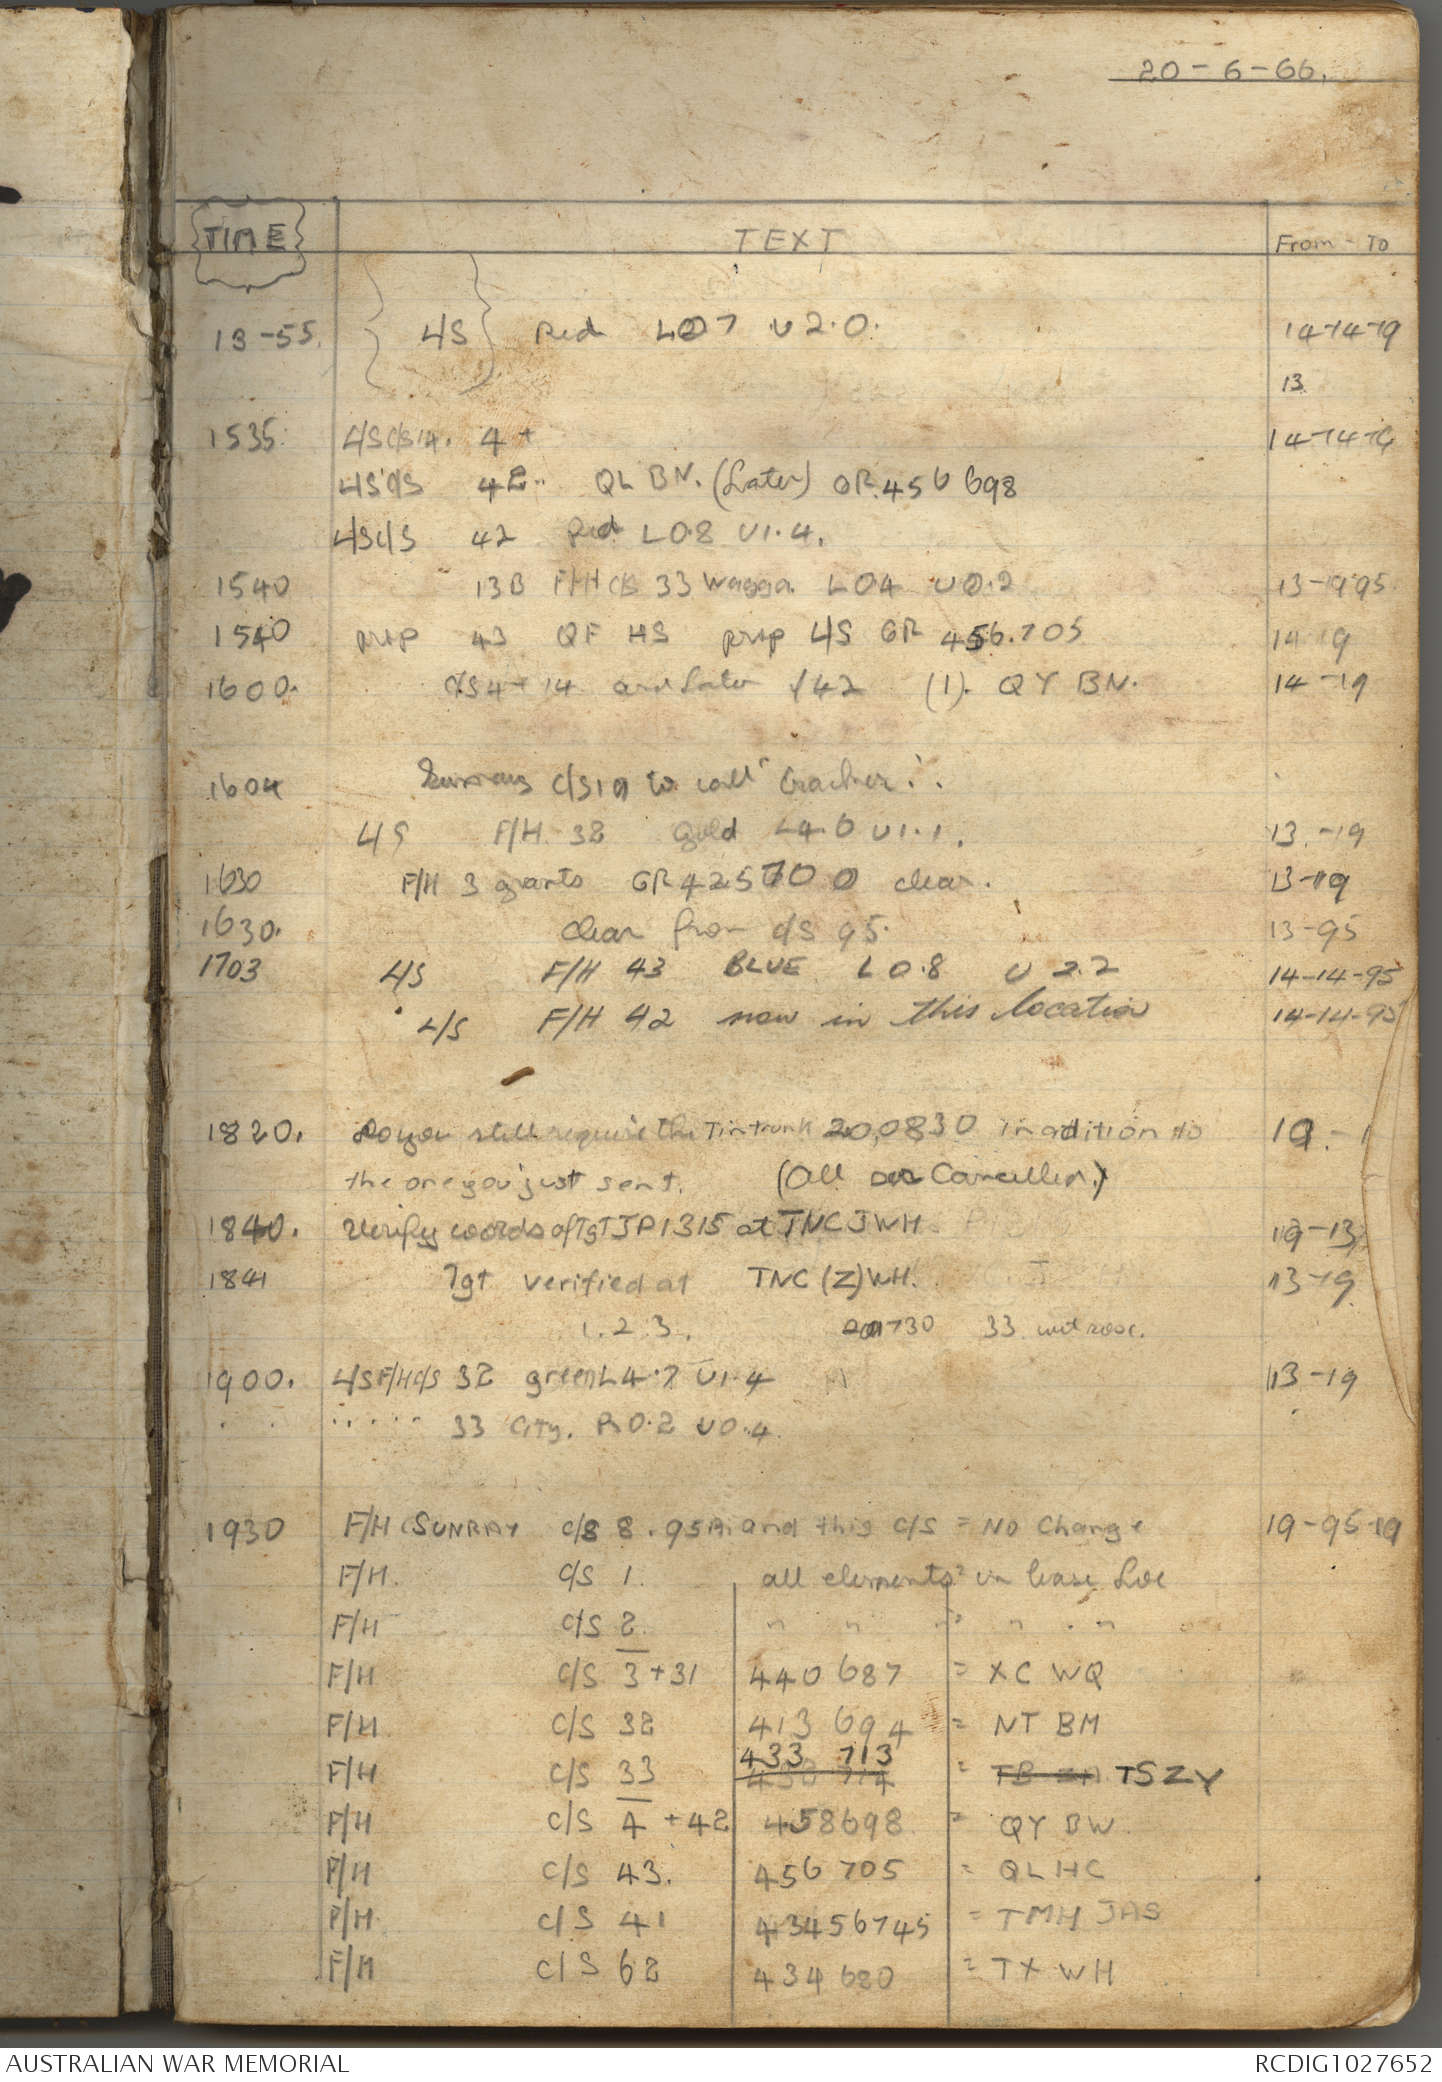 20-6-66.
TIME TEXT From - To
13-55. L/S Red L07 U2.0. 14-14-19
13
1535. L/S C/S 14. 4+ 14-14-
L/S C/S 42.. QL BN. (Later) GR.456 698
L/S C/S 42 Red L0.8 U1.4.
1540 13B F/H C/S 33 Wagga L04 U0.2 13-19 95
1540 prep 43 QF HS prep L/S GR 456.705 14 19
1600. C/S 4+ 14 and Later /42 (1). QY BN. 14-19
1604 C/S 19 to call "Cracker".
L/S F/H. 32 Gold L4.0 U1.1. 13.-19
1630 F/H 3 grants GR 425700 clear. 13-19
1630. Clear from C/S 95. 13-95
1703 L/S F/H 43 BLUE L0.8 U 2.2 14-14-95
L/S F/H 42 now in this location 14-14-95
1820. Do you still require the Tintrunk 200830 in adition to 19.-1
the one you just sent. (All Cancelled.)
1840. Verify coords of Tgt JP1315 at TNC JWH 19-13
1841 Tgt verified at TNC (Z) WH. 13-19
1.2.3. 201730 33
1900. L/S F/H C/S 32 green L4.7 U1.4 13-19
" " " " " 33 City. R0.2 U0.4
1930 F/H SUNRAY C/S 8. 95A. and this C/S = NO Change 19-95-19
F/H. C/S 1. all elements in base Loc
F/H C/S 2. " " " " "
F/H C/S 3+31 440 687 = XC WQ
F/H. C/S 32 413 694 = NT BM
433 713
F/H C/S 33 = TSZY
F/H C/S 4 +42 458698 = QY BW.
F/H C/S 43. 456 705 = QLHC
F/H. C/S 41 43456745 = TMH JAS
F/H C/S 62 434 680 = TX WH
AUSTRALIAN WAR MEMORIAL RCDIG1027652